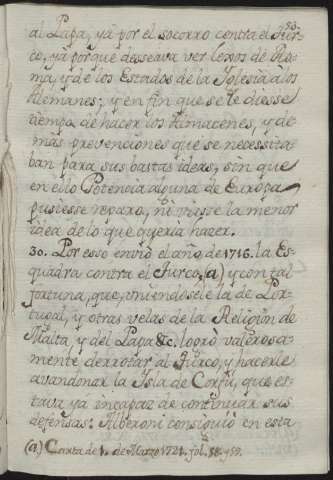 93.
al Papa, yá por el socorro contra el Tur-
co, yá porque desseava ver lexos de Ro-
ma, y de los Estados de la Iglesia a los
Alemanes; y en fin que se le diesse
tiempo de hacer los Almacenes, y de
más prevenciones que se necessita
ban para sus bastas ideas, sin que
en ello Potencia alguna de Europa
pusiesse reparo, ni viasse la menor
idea de lo que queria hacer.
30. Por esso envió el año de 1716. la Es-
quadra contra el Turco, (a) y con tal
fortuna, que, uniendosele la de Por-
tugal, y otras velas de la Religion de
Malta, y del Papa &c. logró valerosa-
mente derrotar al Turco, y hacerle
avandonar la Isla de Corfú, que es-
tava yá incapaz de continuar sus
defensas. Alberoni consiguió en esta
(a.) Carta de 1. de Marzo 1721. fol. 58. y 59.